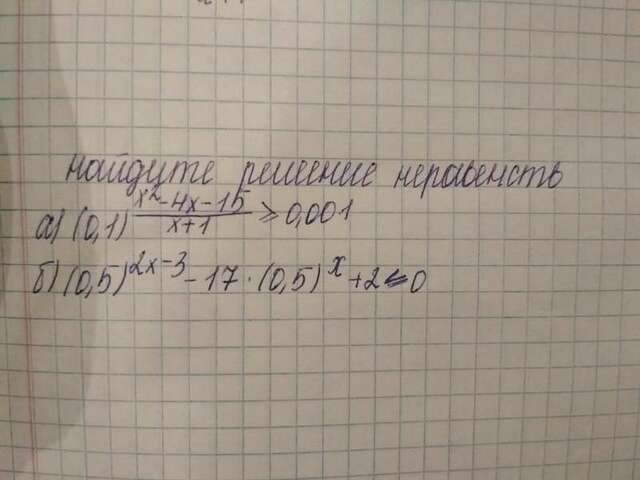 найдите решение неравенств
а) (0,1)^{\frac{x^2-4x-15}{x+1}} ⩾ 0,001
б) (0,5)^{2x-3} - 17 · (0,5)^x + 2 ⩽ 0